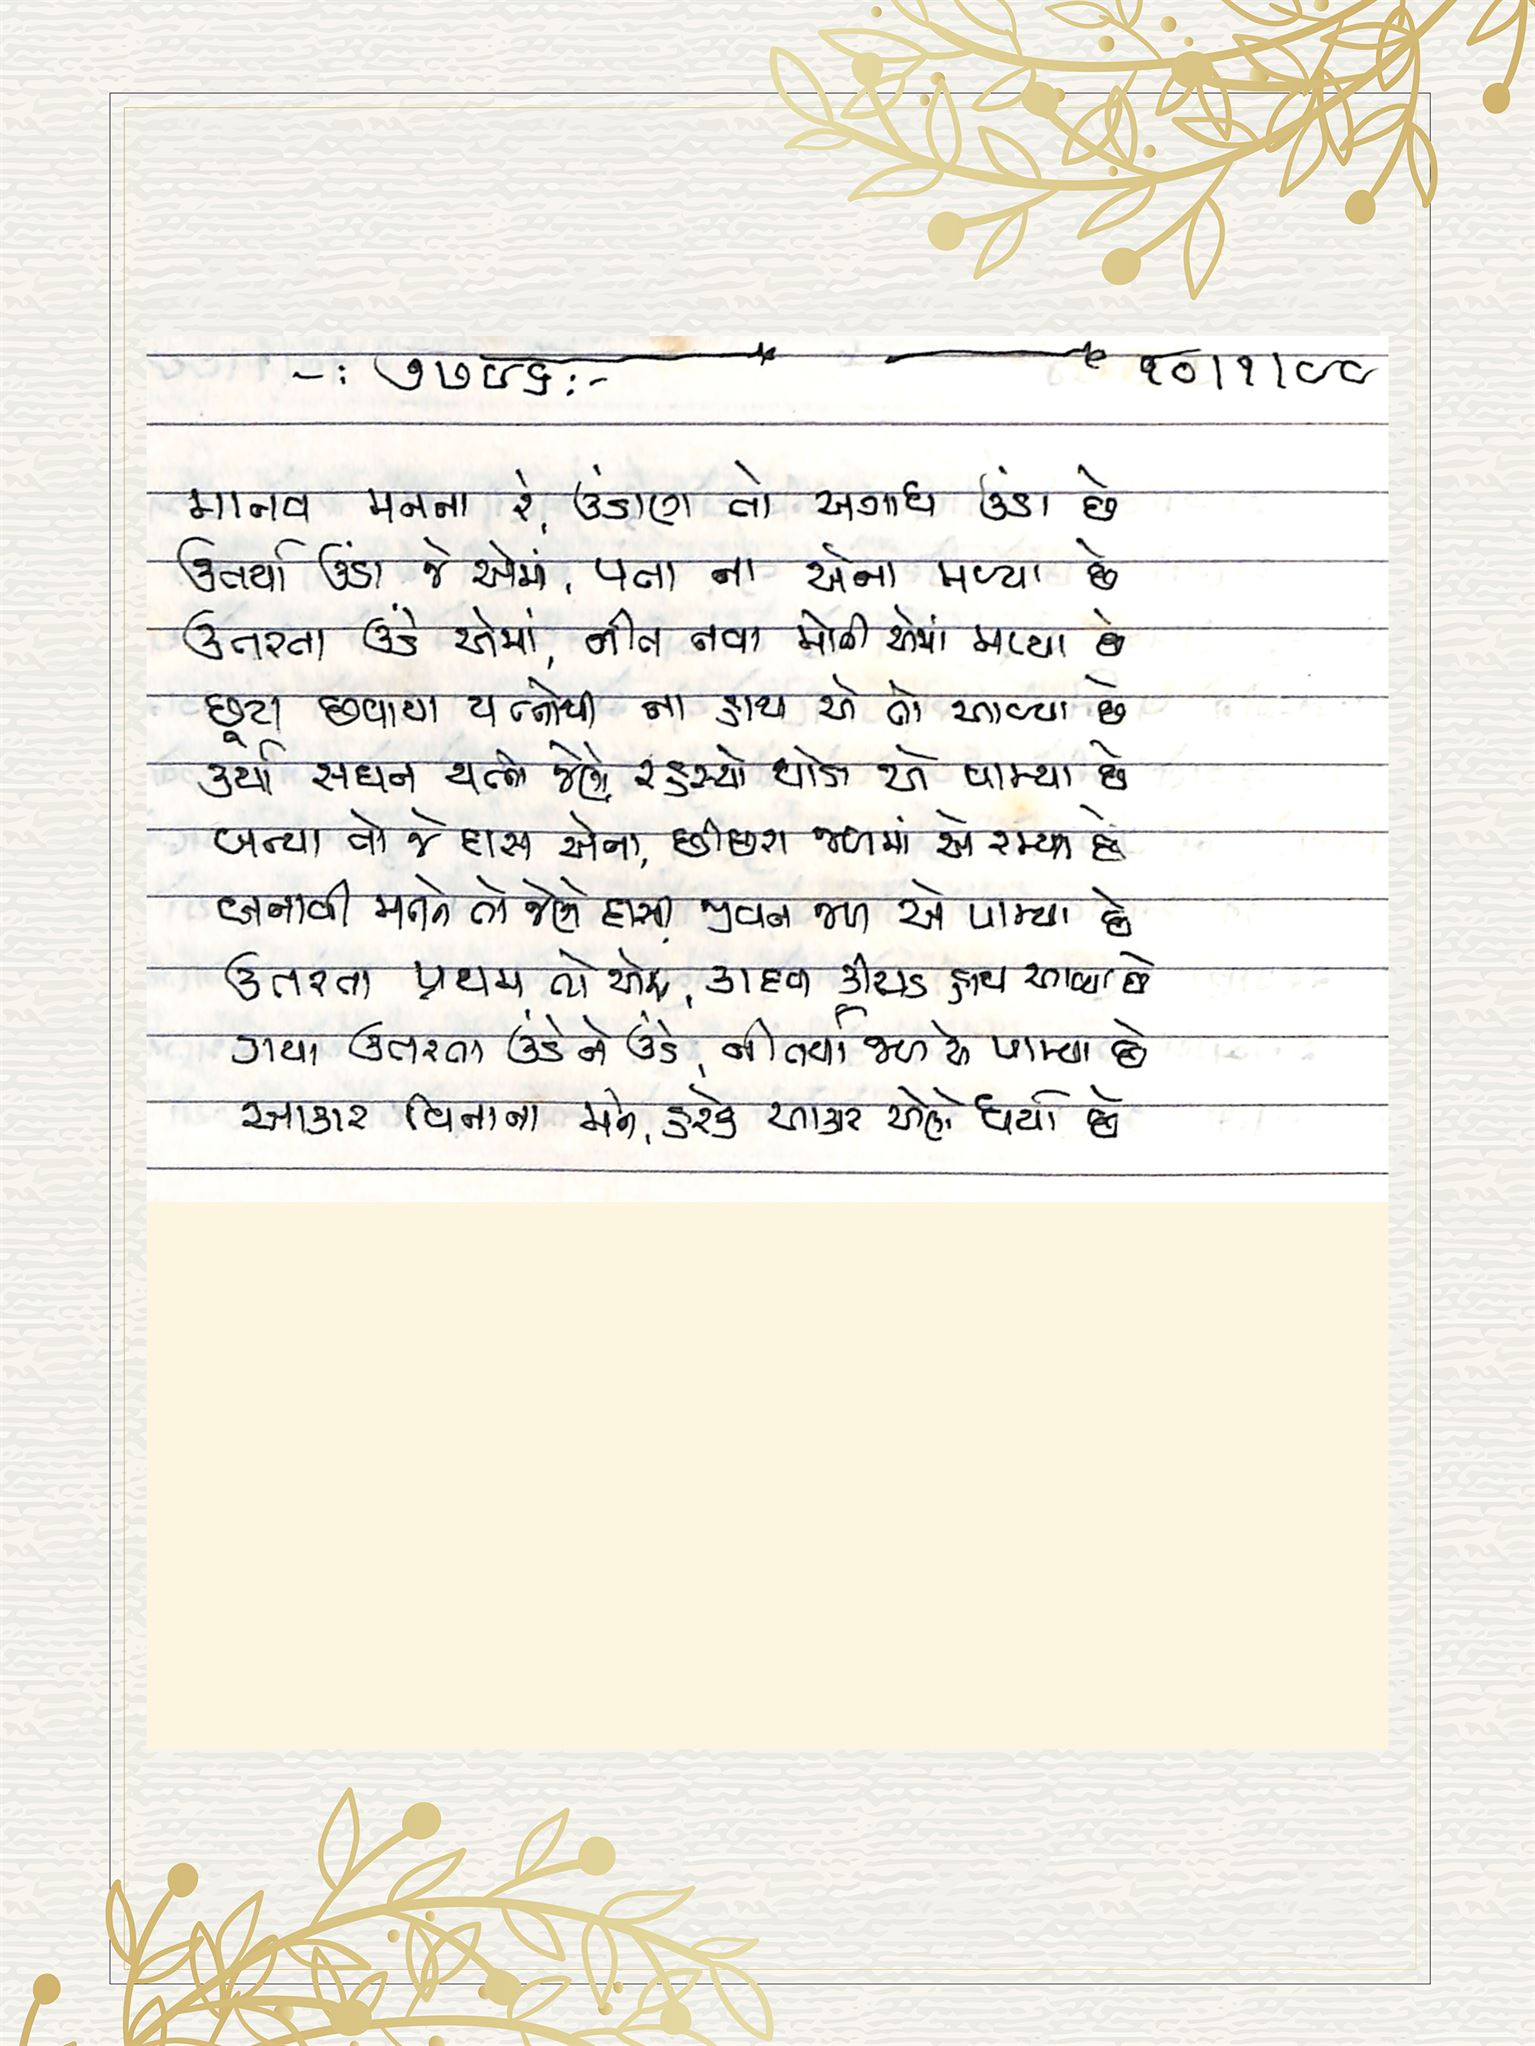 -: ૭૭૯૬ :-
૧૦|૧|૯૯
માનવ મનના રે, ઉંડાણ તો અગાધ ઉંડા છે
ઉતર્યા ઉંડા જે એમાં, પતા ના એના મળ્યા છે
ઉતરતા ઉંડે એમાં, નીત નવા મોતી એમાં મળ્યા છે
છૂટા છવાયા યત્નોથી ના હાથ એ તો આવ્યા છે
કર્યા સઘન યત્નો જેણે, રહસ્યો થોડા એ પામ્યા છે
બન્યા તો જે દાસ એના, છીછરા જળમાં એ રમ્યા છે
બનાવી મનને તો જેણે દાસ, જીવન જળ એ પામ્યા છે
ઉતરતા પ્રથમ તો એમાં, કાદવ કીચડ હાથ આવ્યા છે
ગયા ઉતરતા ઉંડે ને ઉંડે, નીતર્યા જળ એ પામ્યા છે
આકાર વિનાના મને, હરેક આકાર એણે ધર્યા છે